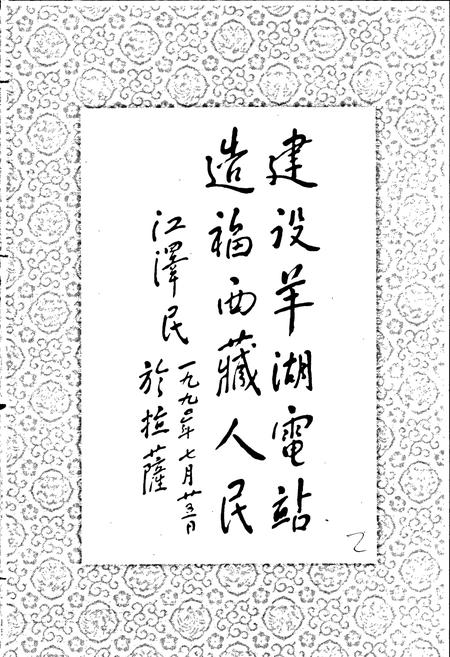 建设羊湖電站
造福西藏人民
江澤民
一九九〇年七月廿三日
於拉薩